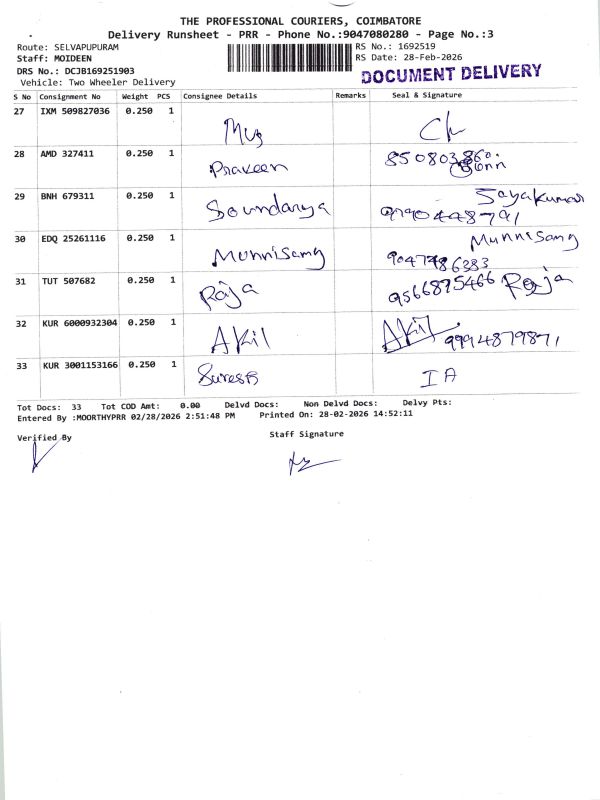 THE PROFESSIONAL COURIERS, COIMBATORE
Delivery Runsheet - PRR - Phone No.:9047080280 - Page No.:3
Route: SELVAPUPURAM
RS No.: 1692519
Staff: MOIDEEN
RS Date: 28-Feb-2026
DRS No.: DCJB169251903
DOCUMENT DELIVERY
Vehicle: Two Wheeler Delivery
S No Consignment No Weight PCS Consignee Details Remarks Seal & Signature
27 IXM 509827036 0.250 1
28 AMD 327411 0.250 1
Praveen
29 BNH 679311 0.250 1
Soundarya
30 EDQ 25261116 0.250 1
Munnisamy Munnisamy
9047486383
31 TUT 507682 0.250 1
Raja 9566875466 Raja
32 KUR 6000932304 0.250 1
Akil Akil 9994879871
33 KUR 3001153166 0.250 1
Suresh IA
Tot Docs: 33 Tot COD Amt: 0.00 Delvd Docs: Non Delvd Docs: Delvy Pts:
Entered By :MOORTHYPRR 02/28/2026 2:51:48 PM Printed On: 28-02-2026 14:52:11
Verified By Staff Signature